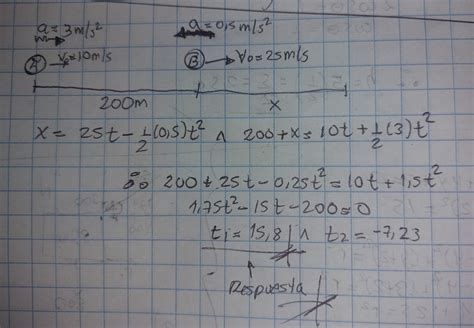 a = 3 m/s² a = 0,5 m/s²
A V₀ = 10 m/s B V₀ = 25 m/s
200m x
x = 25t - 1/2 (0,5)t² ∧ 200 + x = 10t + 1/2 (3)t²
∴ 200 + 25t - 0,25t² = 10t + 1,5t²
1,75t² - 15t - 200 = 0
t₁ = 15,8 ∧ t₂ = -7,23
Respuesta